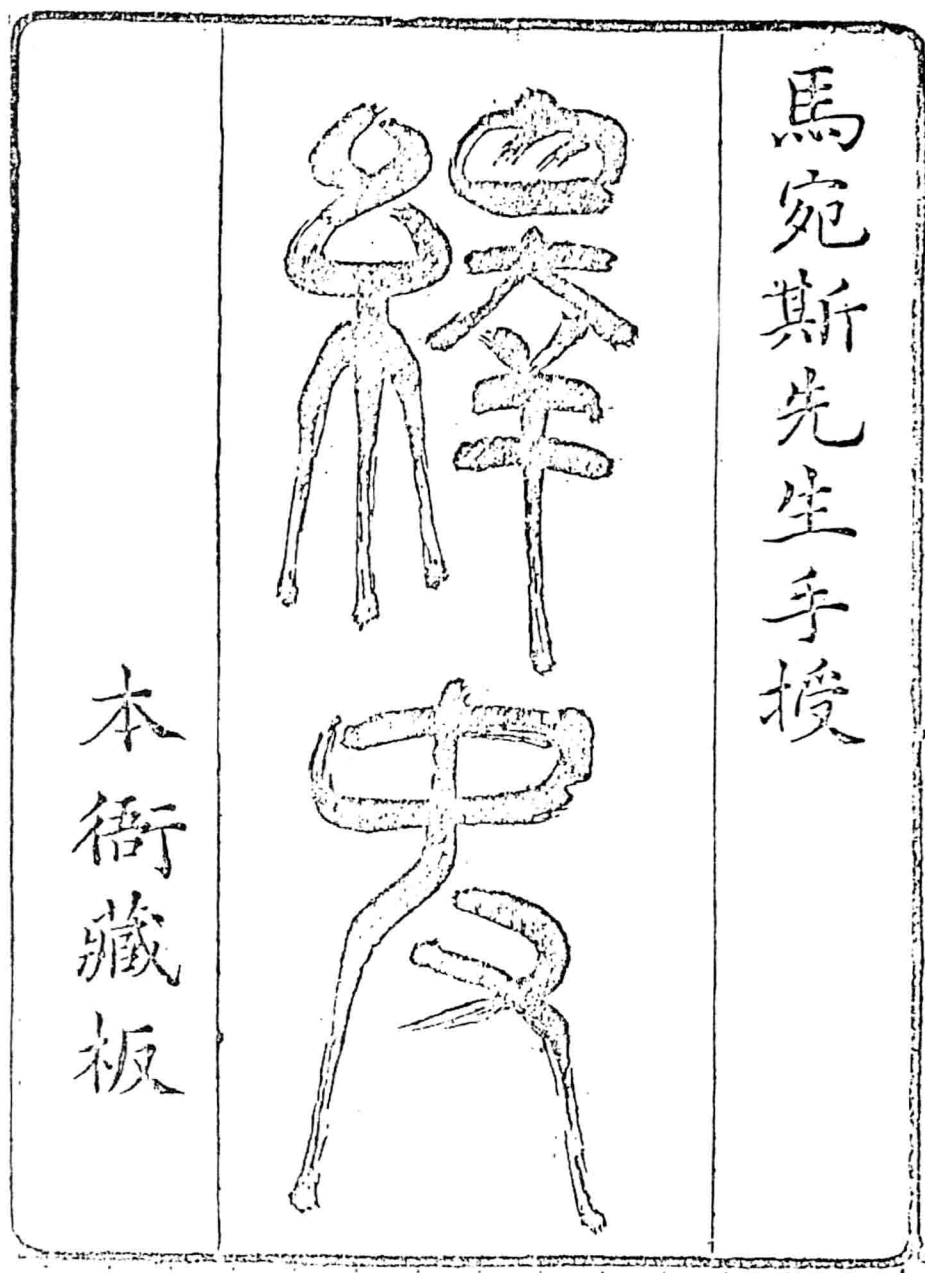 馬宛斯先生手授
繹史
本衙藏板